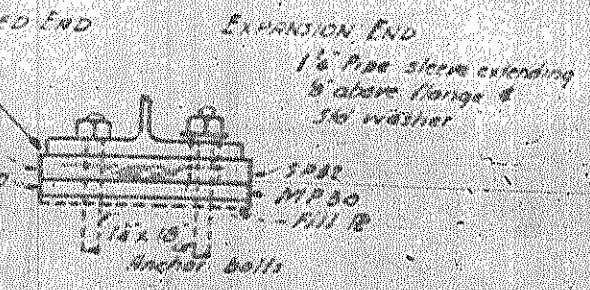 ED END
EXPANSION END
Pipe sleeve extending
above flange &
Std washer
SP82
MP30
Fill ⅊
Anchor bolts